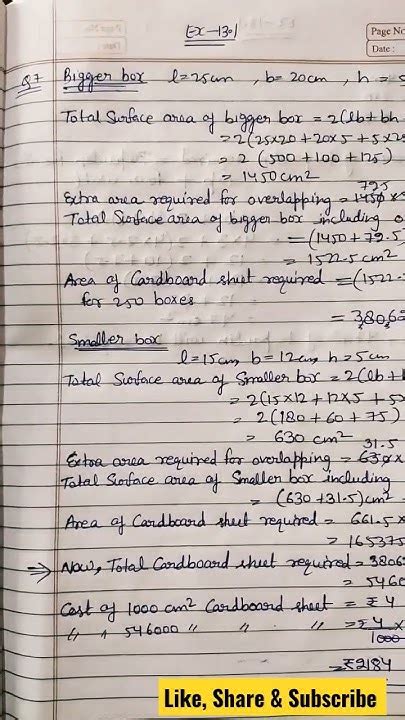 Ex-13.1
Page No
Date:
Q.7 Bigger box l=25cm, b=20cm, h=5
Total Surface area of bigger box = 2(lb+bh
= 2(25×20+20×5+5×25
= 2 (500+100+125)
= 1450cm²
Extra area required for overlapping = 1450×5
Total Surface area of bigger box including o
= (1450+72.5)
= 1522.5 cm²
Area of Cardboard sheet required = (1522.
for 250 boxes
= 38062
Smaller box
l=15cm b=12cm h=5cm
Total Surface area of Smaller box = 2(lb+
= 2(15×12+12×5+5×
= 2(180+60+75)
= 630 cm²
31.5
Extra area required for overlapping = 630×
Total Surface area of Smaller box including
= (630+31.5)cm²
Area of Cardboard sheet required = 661.5×
= 165375
⇒ Now, Total Cardboard sheet required = 3806
= 5460
Cost of 1000 cm² Cardboard sheet = ₹4
" " 546000 " " " = ₹4×
1000
= ₹2184
Like, Share & Subscribe